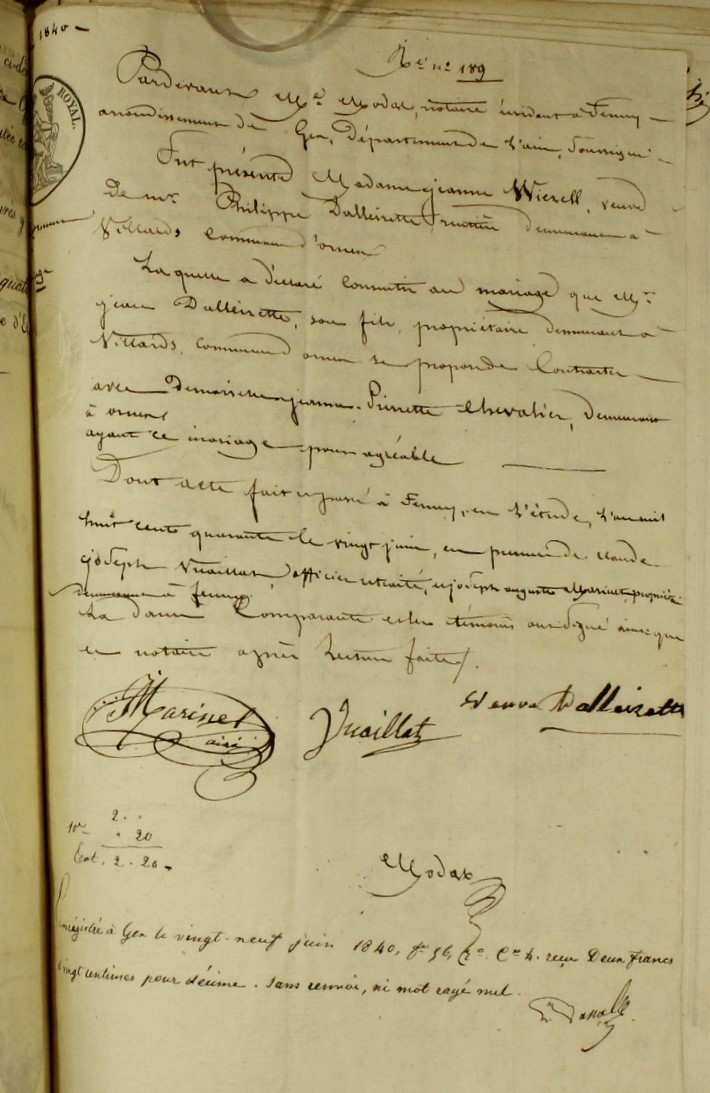 1840 -
ROYAL.
Re no 189
Pardevant Me Modas, notaire résidant à Ferney
arrondissement de Gex, Département de l'ain, soussigné
Fut présente Madame jeanne Wierell, veuve
De mr. Philippe Dalleizette rentière demeurant à
Villards commune d'ornex
Laquelle a déclaré Consentir au mariage que Mr.
jean Dalleizette, son fils, propriétaire demeurant à
Villards, commune d'ornex se propose de Contracter
avec Demoiselle jeanne-Pierrette Chevalier, demeurant
à ornex
ayant ce mariage pour agréable
Dont acte fait et passé à Ferney, en l'étude, l'an mil
huit cents quarante le vingt juin, en présence de claude
joseph Vuaillat officier retraité, et joseph auguste Marinet, propriét.
demeurant à ferney.
La dame Comparante et les témoins ont signé ainsi que
le notaire après Lecture faite.
Marinet
ainé
Vuaillat
Veuve Dalleizette
2. .
10e . 20
Tot. 2. 20.
Modas
Enregistré à Gex le vingt-neuf juin 1840, fo 56, Ro. Ce 4. reçu Deux Francs
vingt centimes pour décime. sans renvoi, ni mot rayé nul.